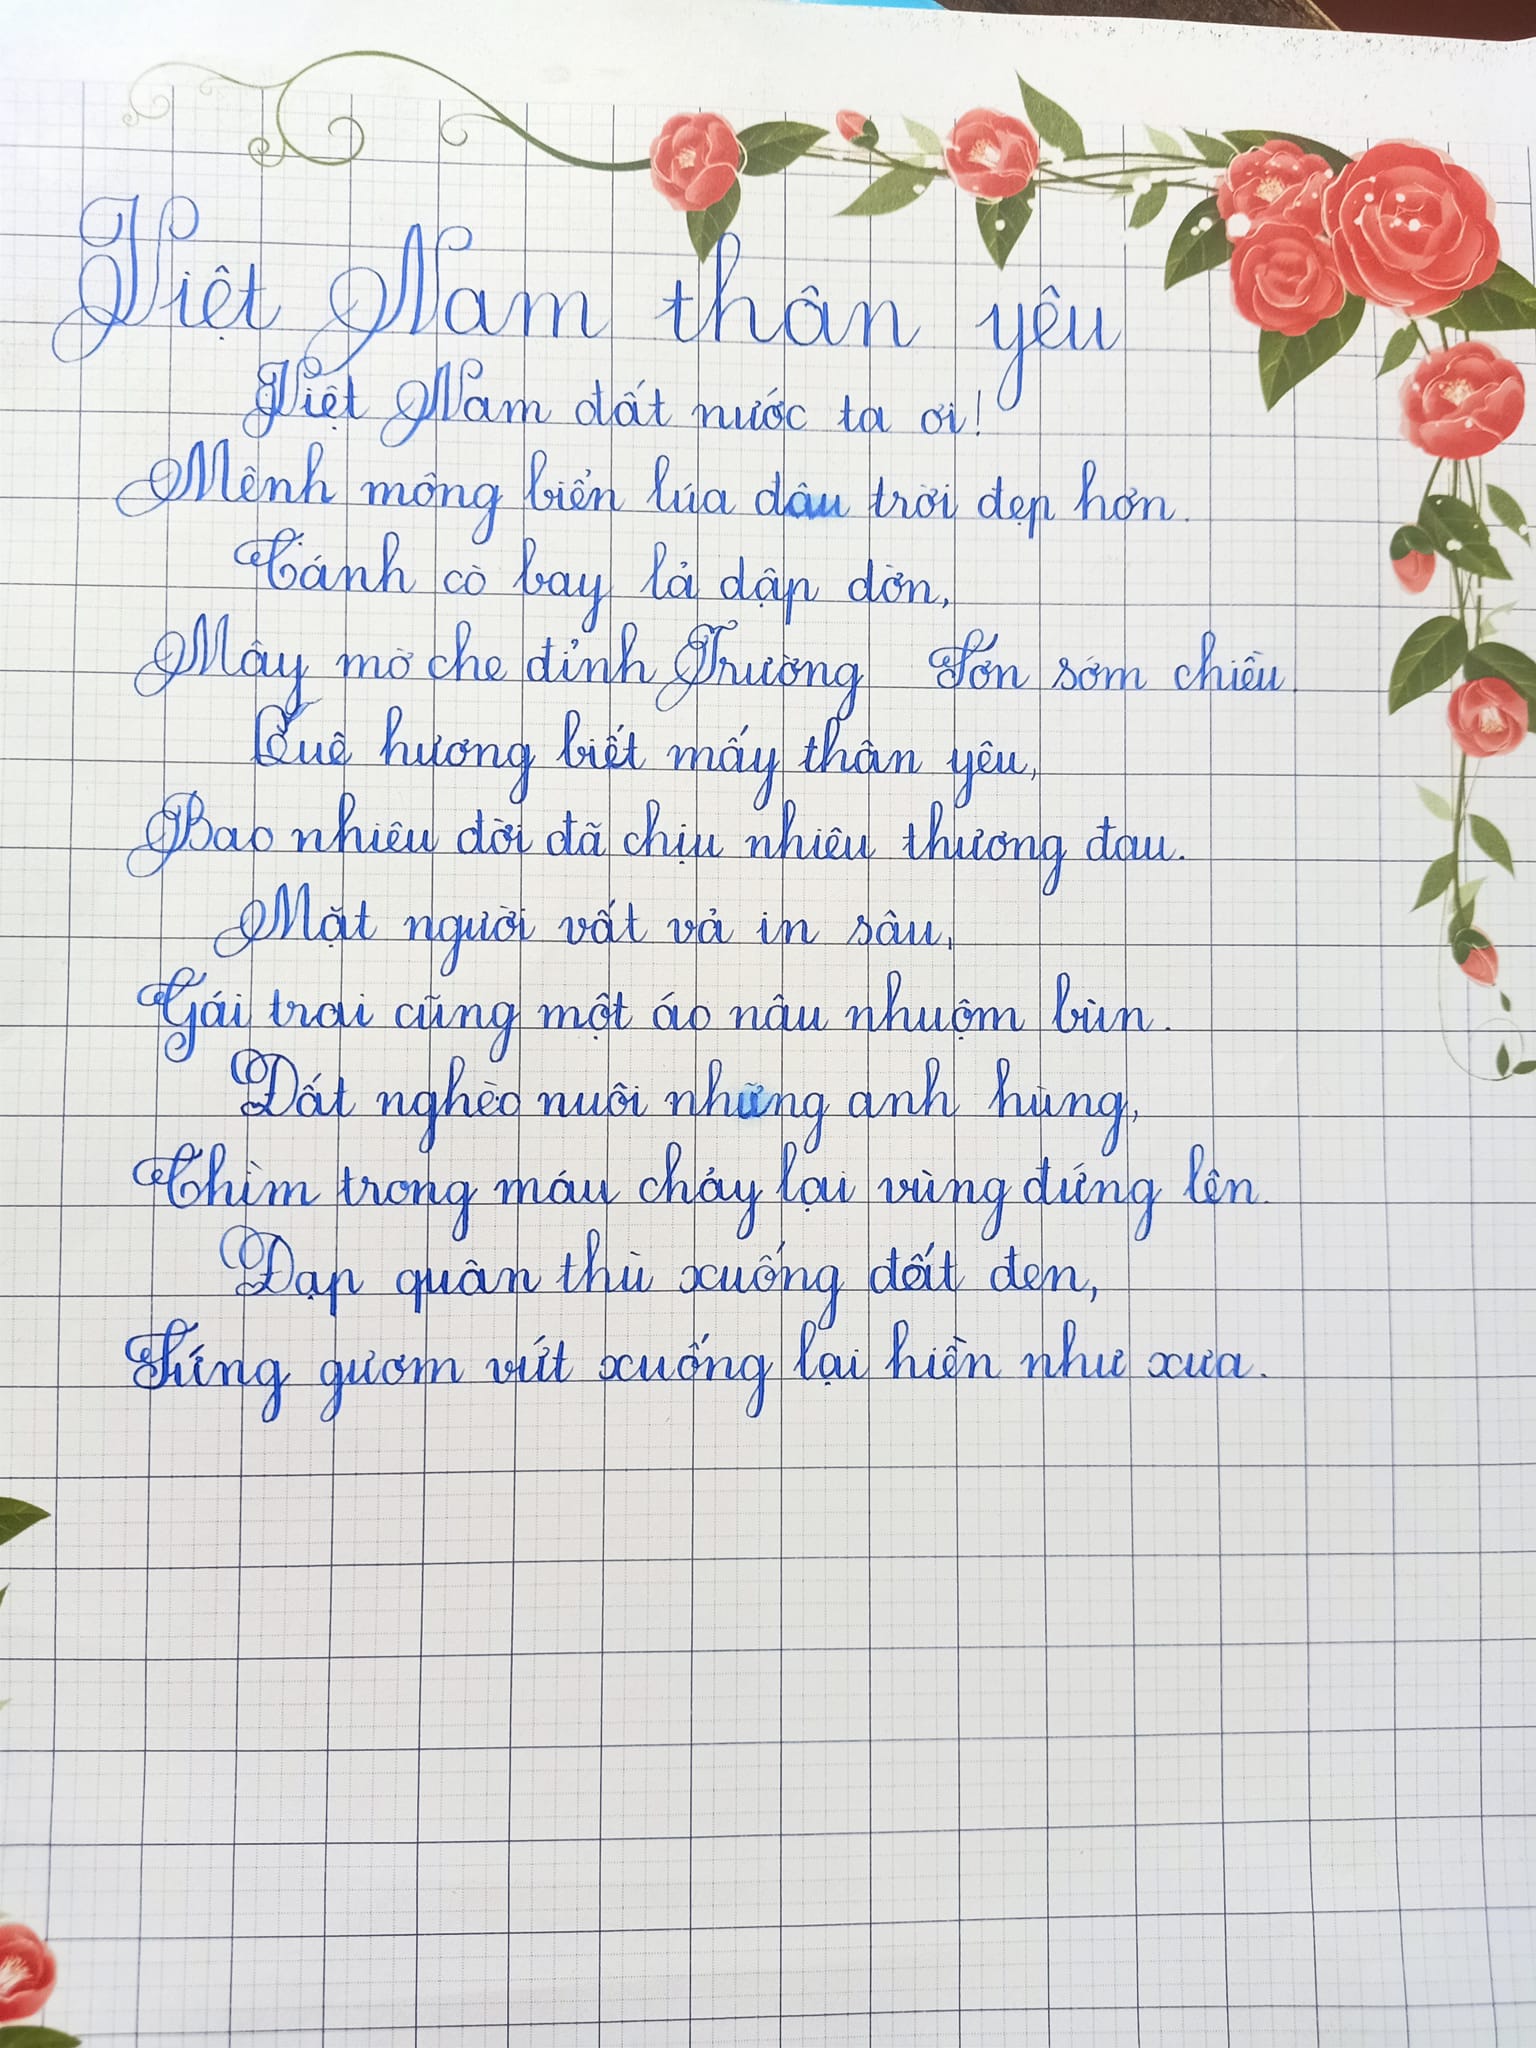 Việt Nam thân yêu
Việt Nam đất nước ta ơi!
Mênh mông biển lúa đâu trời đẹp hơn.
Cánh cò bay lả dập dờn,
Mây mờ che đỉnh Trường Sơn sớm chiều.
Quê hương biết mấy thân yêu,
Bao nhiêu đời đã chịu nhiêu thương đau.
Mặt người vất vả in sâu,
Gái trai cũng một áo nâu nhuộm bùn.
Đất nghèo nuôi những anh hùng,
Chìm trong máu chảy lại vùng đứng lên.
Đạp quân thù xuống đất đen,
Súng gươm vứt xuống lại hiền như xưa.